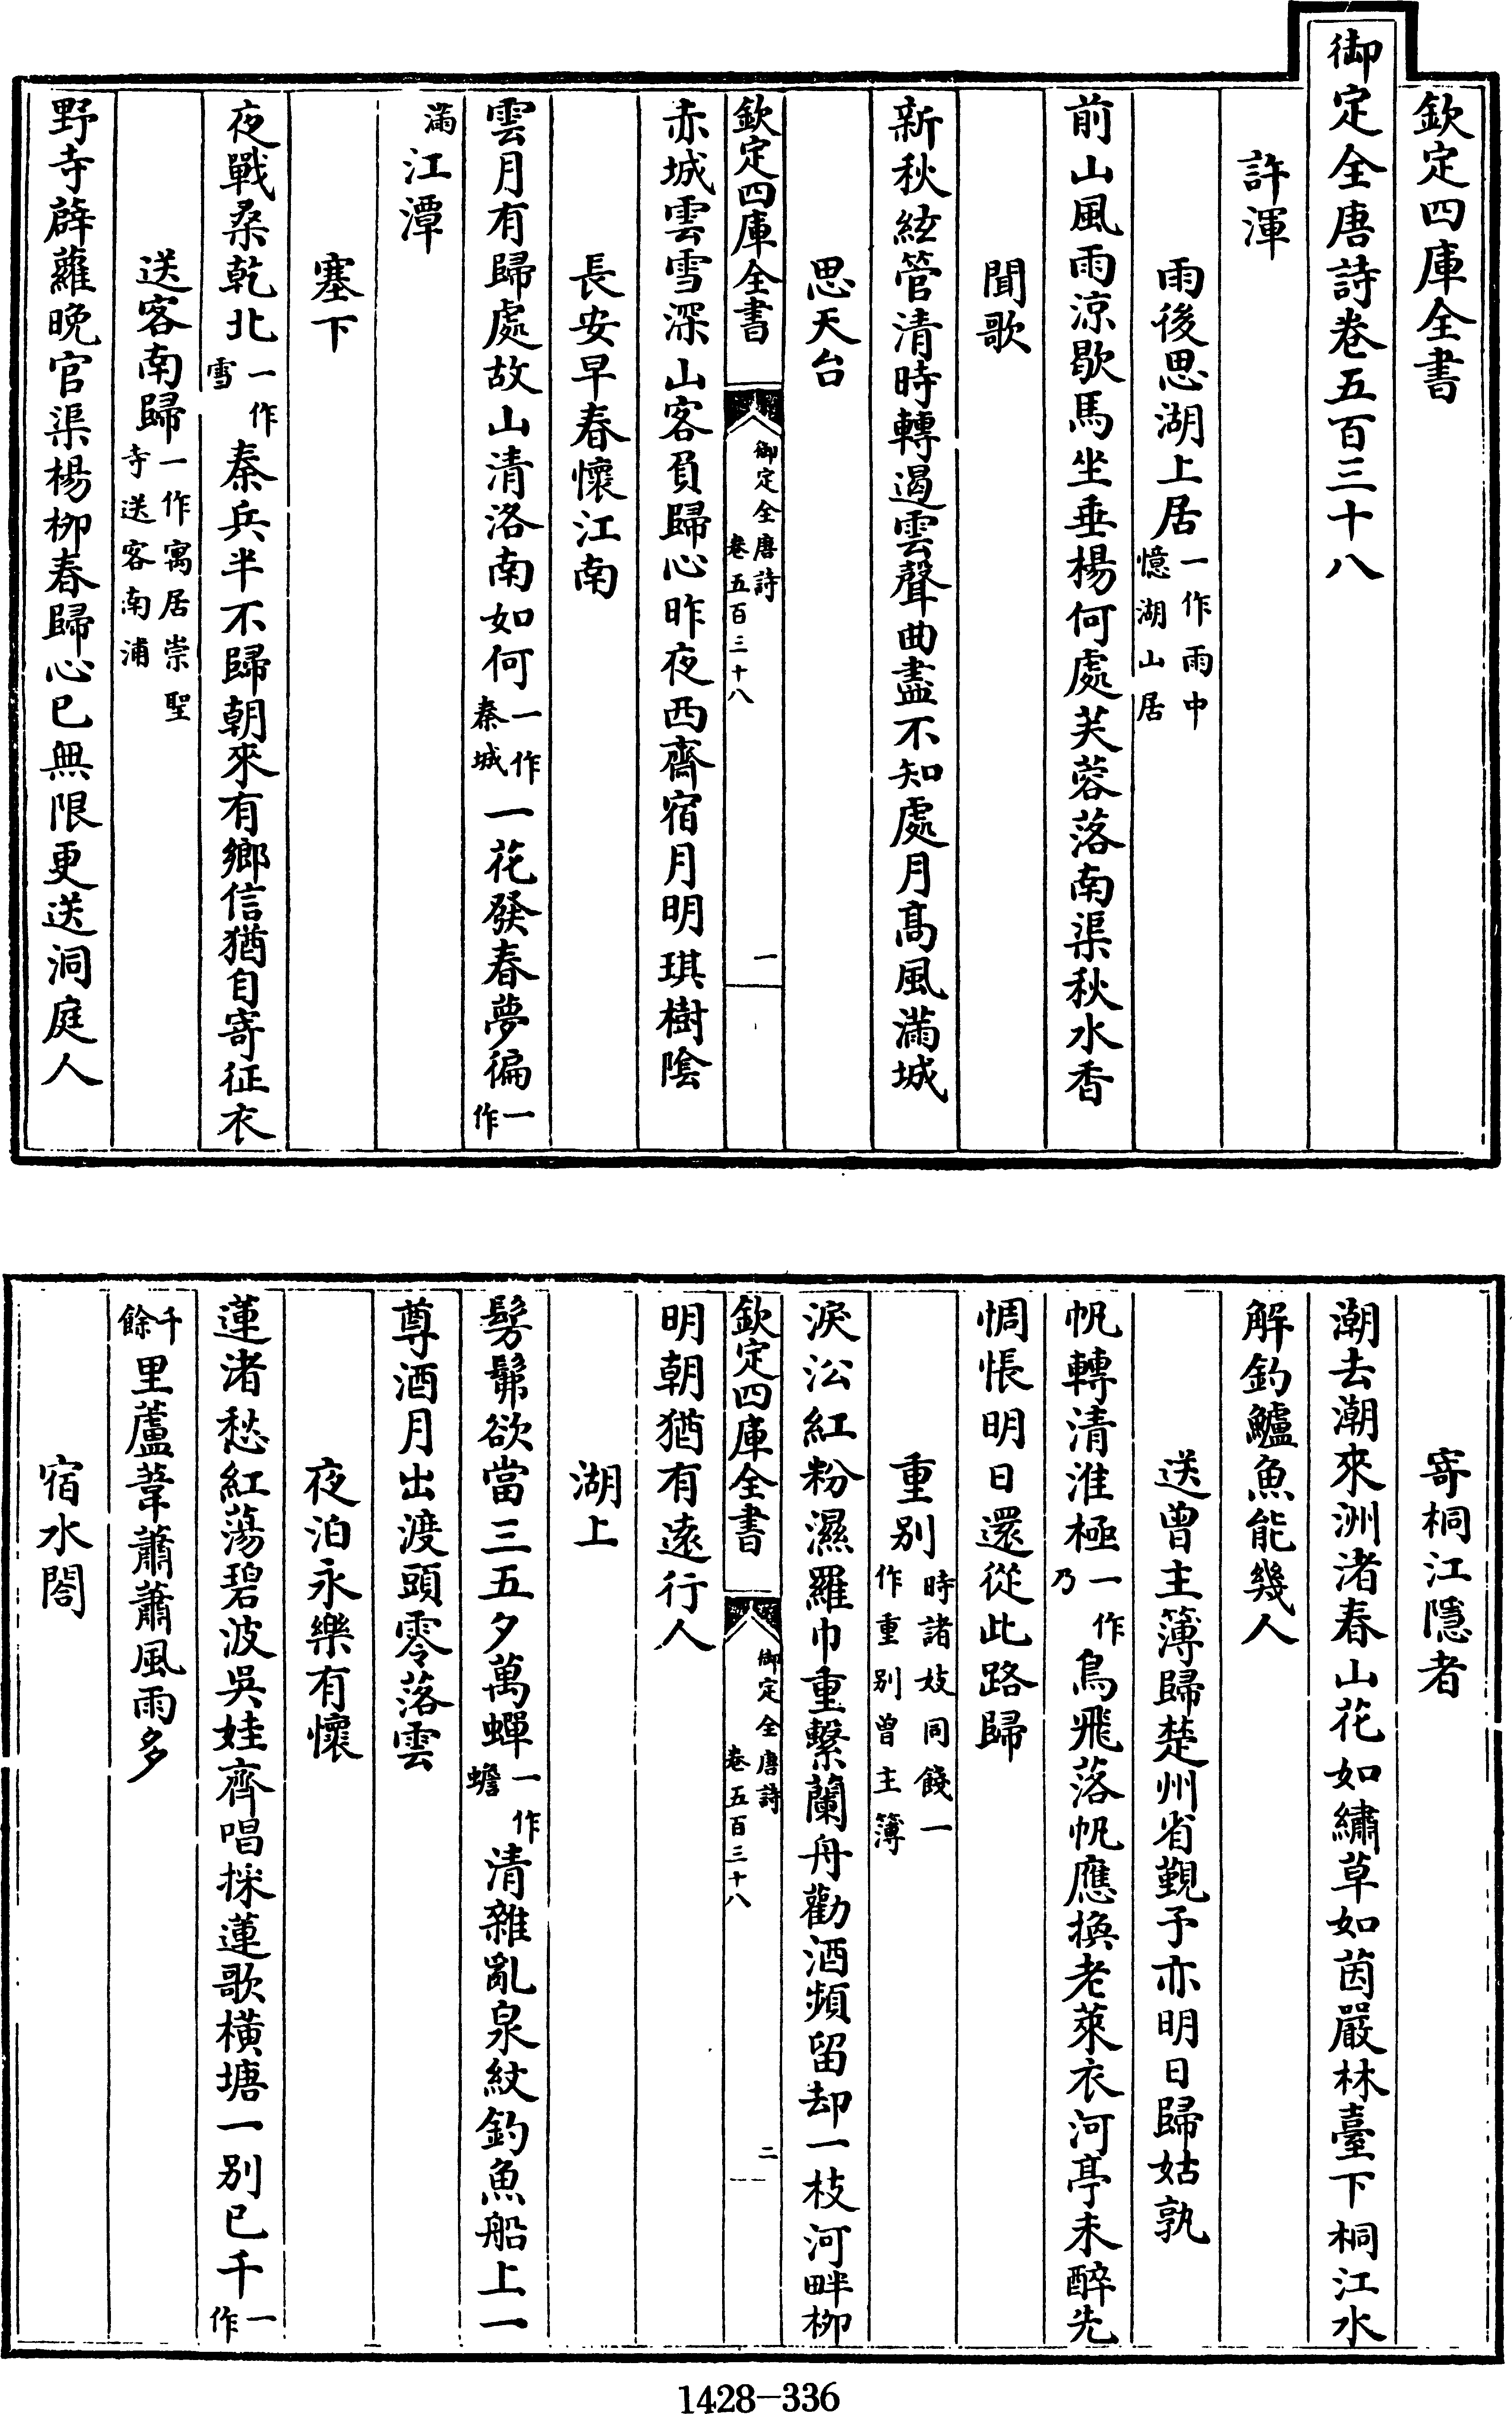 欽定四庫全書
御定全唐詩卷五百三十八
許渾
雨後思湖上居一作雨中憶湖山居
前山風雨涼歇馬坐垂楊何處芙蓉落南渠秋水香
聞歌
新秋絃管清時轉遏雲聲曲盡不知處月高風滿城
思天台
欽定四庫全書
御定全唐詩
卷五百三十八
一
赤城雲雪深山客負歸心昨夜西齋宿月明琪樹陰
長安早春懷江南
雲月有歸處故山清洛南如何一作秦城一花發春夢徧一作
滿江潭
塞下
夜戰桑乾北一作雪秦兵半不歸朝來有鄉信猶自寄征衣
送客南歸一作寓居崇聖寺送客南浦
野寺薜蘿晚官渠楊柳春歸心已無限更送洞庭人
寄桐江隱者
潮去潮來洲渚春山花如繡草如茵嚴林臺下桐江水
解釣鱸魚能幾人
送曾主簿歸楚州省覲予亦明日歸姑孰
帆轉清淮極一作乃鳥飛落帆應換老萊衣河亭未醉先
惆悵明日還從此路歸
重别時諸妓同餞一作重别曾主簿
淚沿紅粉濕羅巾重繫蘭舟勸酒頻留却一枝河畔柳
欽定四庫全書
御定全唐詩
卷五百三十八
二
明朝猶有遠行人
湖上
髣髴欲當三五夕萬蟬一作蟾清雜亂泉紋釣魚船上一
尊酒月出渡頭零落雲
夜泊永樂有懷
蓮渚愁紅蕩碧波吳娃齊唱採蓮歌橫塘一别已千一作
千餘里蘆葦蕭蕭風雨多
宿水閣
1428-336